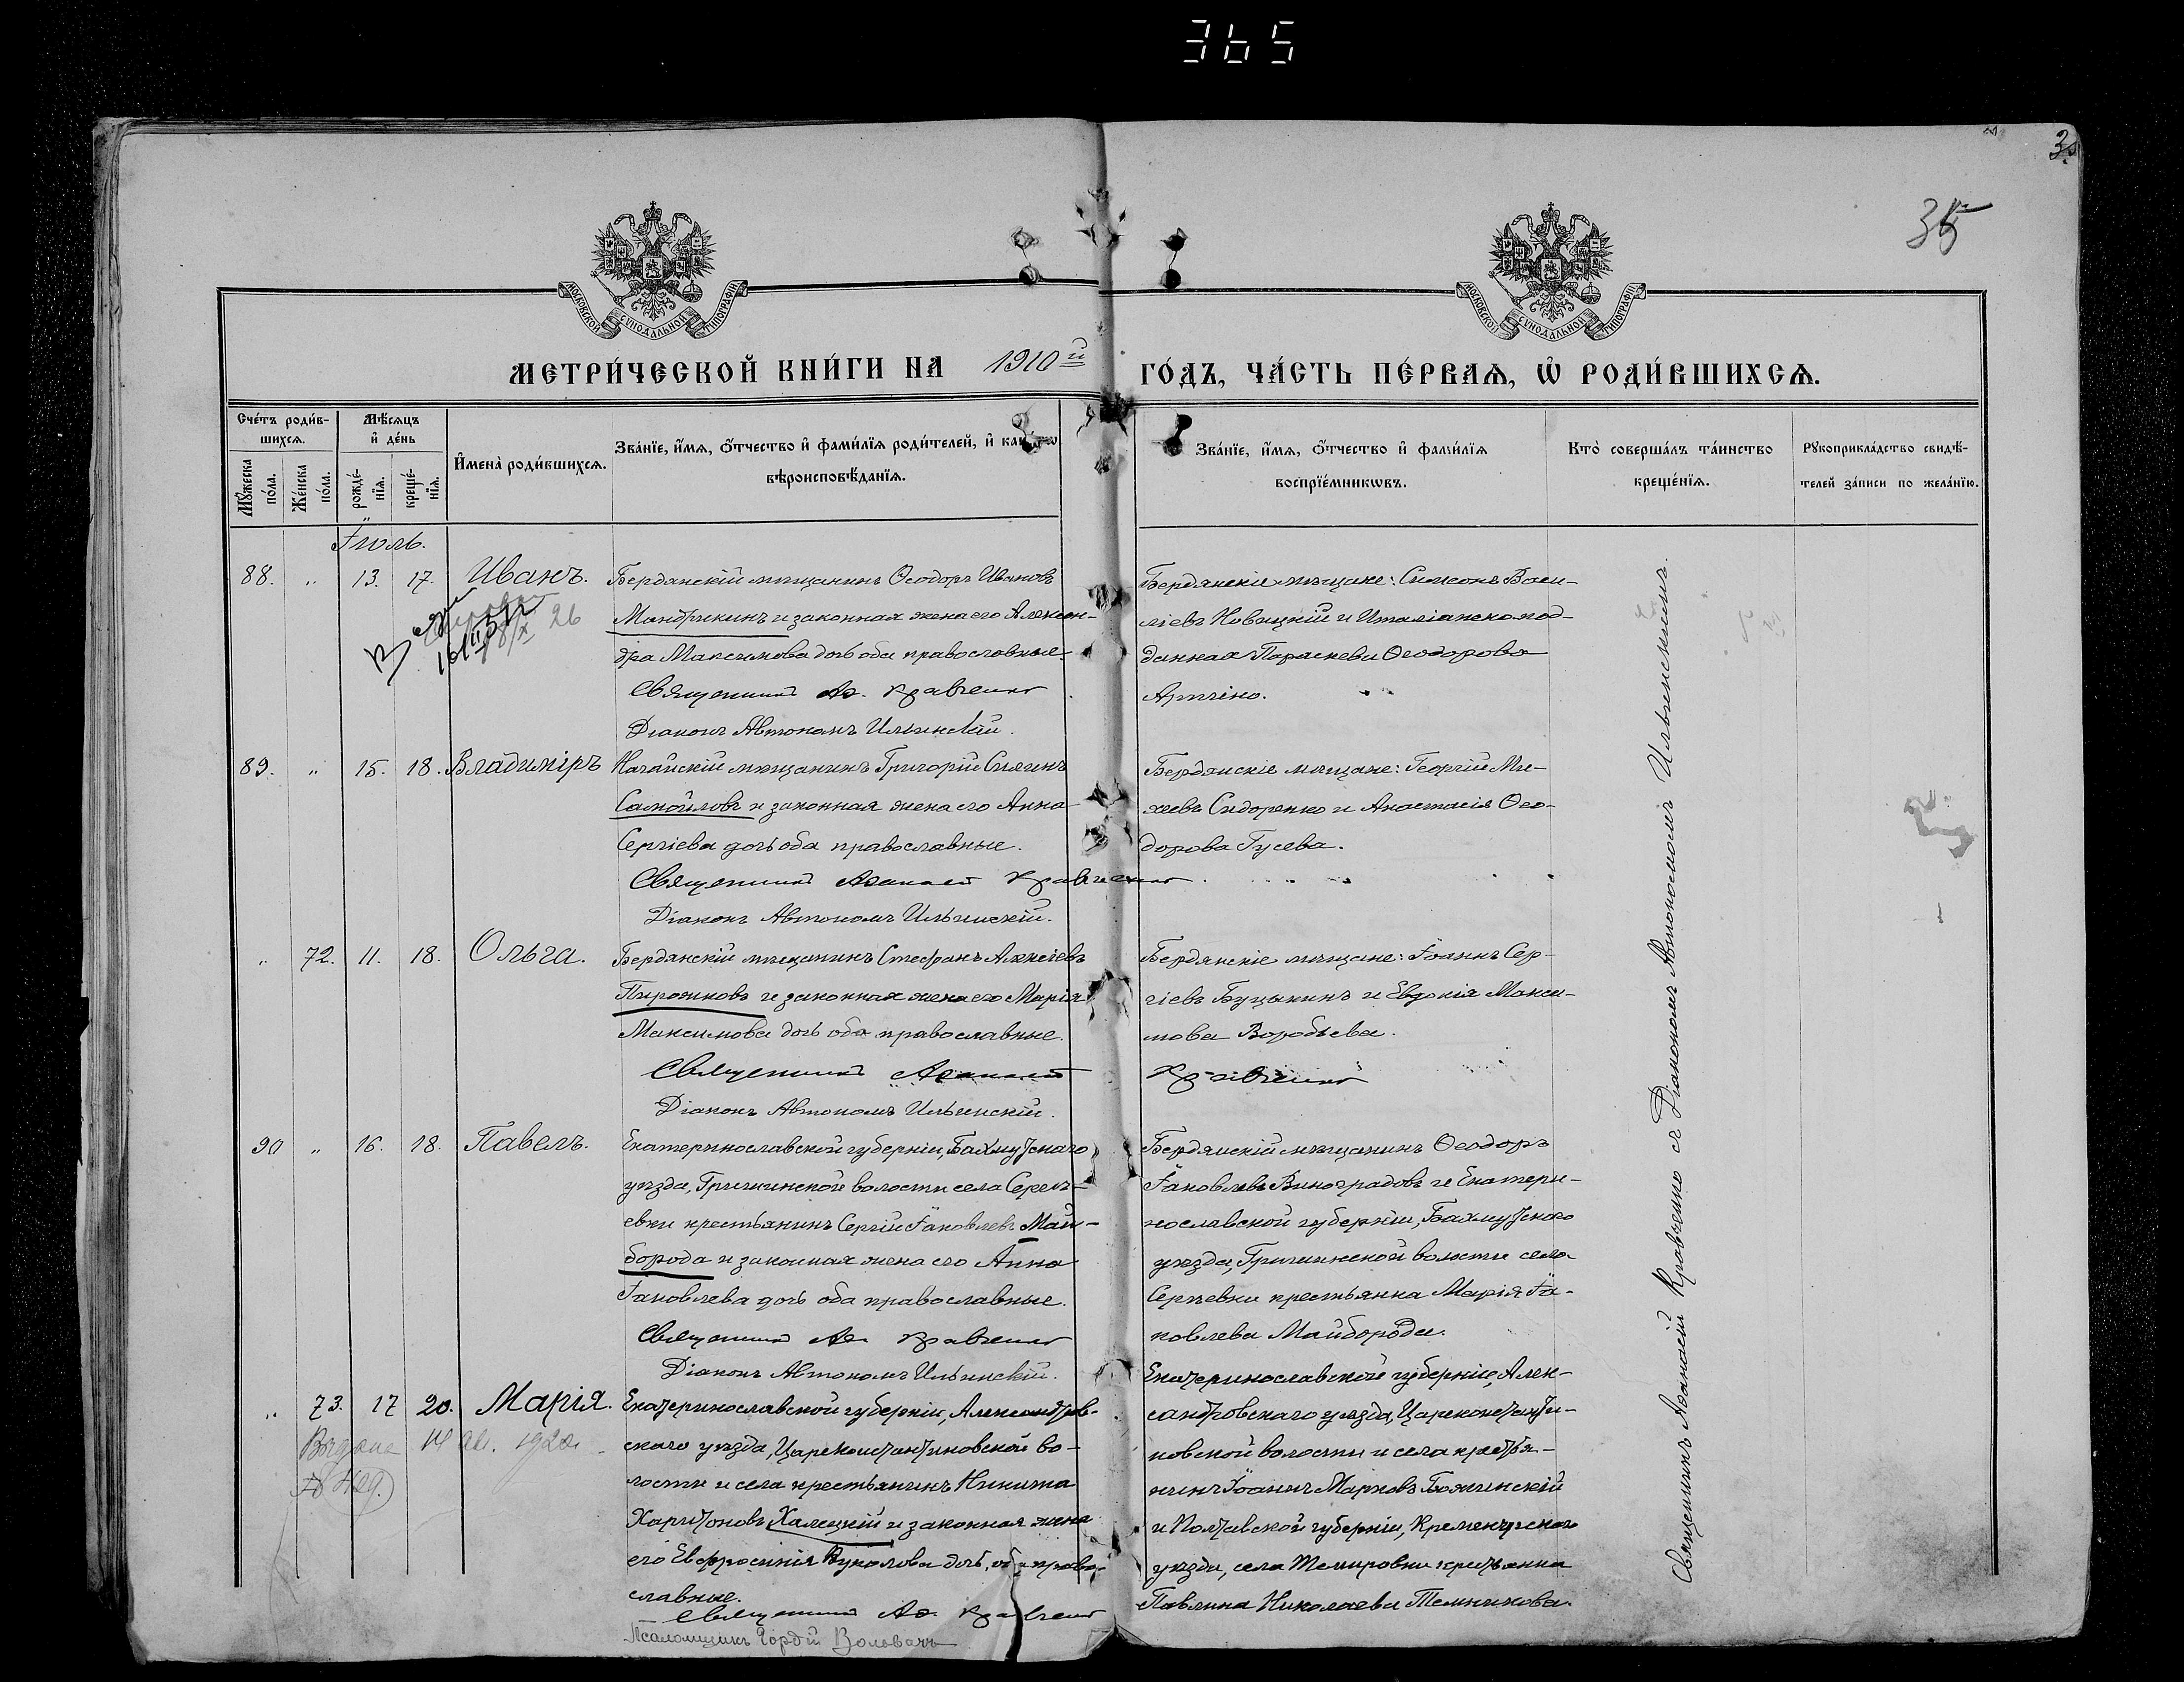 365
35
МОСКОВСКОЙ СѴНОДАЛЬНОЙ ТИПОГРАФІИ
МОСКОВСКОЙ СѴНОДАЛЬНОЙ ТИПОГРАФІИ
МЕТРИ́ЧЕСКОЙ КНИ́ГИ НА 1910й ГО́ДЪ, ЧА́СТЬ ПЕ́РВАѦ, Ѡ҆ РОДИ́ВШИХСѦ.
Сче́тъ роди́в-
шихсѧ.
Мꙋ́жеска по́ла.
Же́нска по́ла.
Мѣ́сѧцъ
и҆ де́нь
рожде́-
нїѧ.
креще́-
нїѧ.
И҆мена̀ роди́вшихсѧ.
Зва́нїе, и҆́мѧ, ѻ҆́тчество и҆ фами́лїѧ роди́телей, и҆ како́гѡ
вѣроисповѣ́данїѧ.
Зва́нїе, и҆́мѧ, ѻ҆́тчество и҆ фами́лїѧ
воспрїе́мникѡвъ.
Кто̀ соверша́лъ та́инство
креще́нїѧ.
Рꙋкоприкла́дство свидѣ́-
телей за́писи по жела́нїю.
Іюль.
88. „ 13. 17. Иванъ.
Бердянскій мѣщанинъ Ѳеодоръ Ивановъ
Мандрыкинъ и законная жена его Алексан-
дра Максимова дочь оба православные.
Священникъ Аѳ. Кравченко
Діаконъ Автономъ Ильинскій.
Бердянскіе мѣщане: Симеонъ Васи-
ліевъ Новицкій и Италіанско под-
данная Параскева Ѳеодорова
26
89. „ 15. 18. Владиміръ
Ногайскій мѣщанинъ Григорій
Самойловъ и законная жена его Анна
Сергіева дочь оба православные.
Священникъ Аѳанасій Кравченко
Діаконъ Автономъ Ильинскій.
Бердянскіе мѣщане: Георгій Ми-
хеевъ Сидоренко и Анастасія Ѳео-
дорова Гусева.
„ 72. 11. 18. Ольга.
Бердянскій мѣщанинъ Стефанъ Алексіевъ
Пирожковъ и законная жена его Марія
Максимова дочь оба православные.
Священникъ Аѳанасій Кравченко
Діаконъ Автономъ Ильинскій.
Бердянскіе мѣщане: Іоаннъ Сер-
гіевъ Буцыкинъ и Евдокія Макси-
мова Воробьева.
90 „ 16. 18. Павелъ.
Екатеринославской губерніи, Бахмутскаго
уѣзда, Гришинской волости села Сергѣ-
евки крестьянинъ Сергій Іаковлевъ Май-
борода и законная жена его Анна
Іаковлева дочь оба православные.
Священникъ Аѳ. Кравченко
Діаконъ Автономъ Ильинскій.
Бердянскій мѣщанинъ Ѳеодоръ
Іаковлевъ Виноградовъ и Екатери-
нославской губерніи, Бахмутскаго
уѣзда, Гришинской волости села
Сергѣевки крестьянка Марія Іа-
ковлева Майборода.
„ 73. 17 20. Марія.
Екатеринославской губерніи, Александров-
скаго уѣзда, Цареконстантиновской во-
лости и села крестьянинъ Никита
Харитоновъ Халецкій и законная жена
его Евфросинія Вуколова дочь, оба право-
славные.
Священникъ Аѳ. Кравченко
Псаломщикъ Гордій Воловачъ
Екатеринославской губерніи, Алек-
сандровскаго уѣзда, Цареконстанти-
новской волости и села крестья-
нинъ Іоаннъ Марковъ Божинскій
и Полтавской губерніи, Кременчугскаго
уѣзда, села крестьянка
Павлина Николаева Темникова.
Выдана 14 1920
Священникъ Аѳанасій Кравченко съ Діакономъ Автономомъ Ильинскимъ.